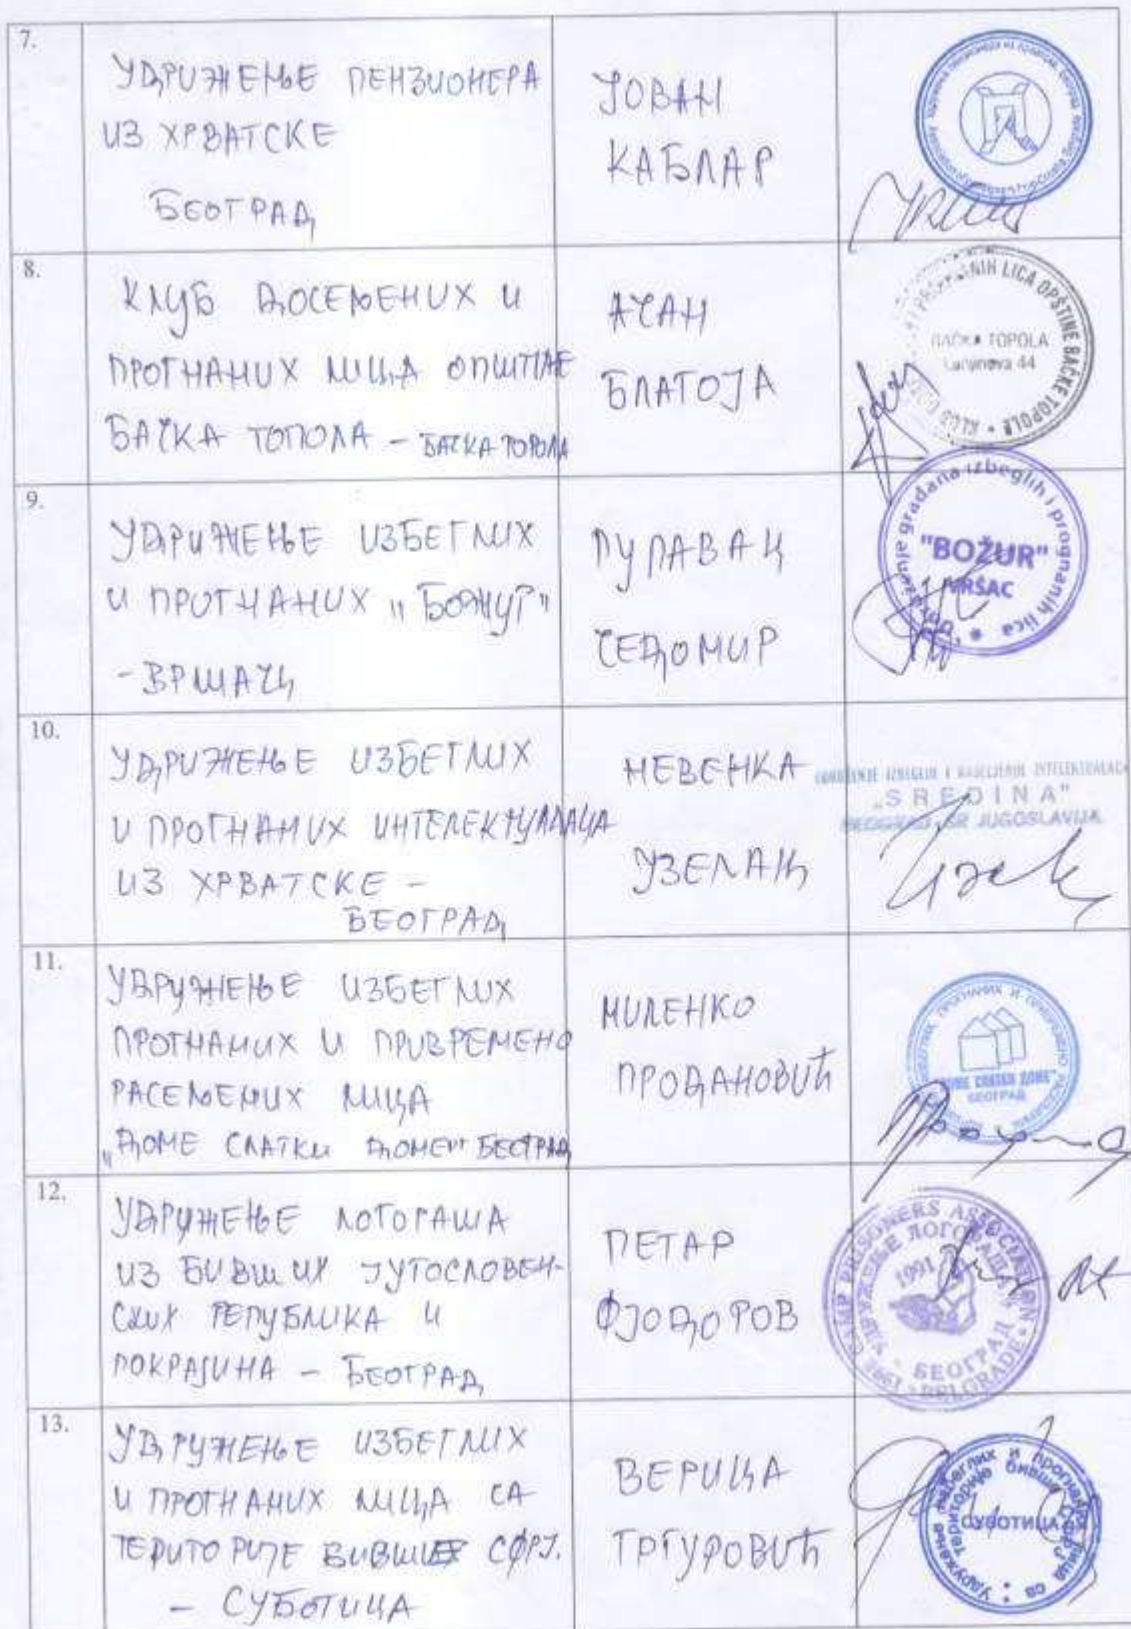 7.
УДРУЖЕЊЕ ПЕНЗИОНЕРА
ИЗ ХРВАТСКЕ
БЕОГРАД
ЈОВАН
КАБЛАР
8.
КЛУБ ДОСЕЉЕНИХ И
ПРОГНАНИХ ЛИЦА ОПШТИНЕ
БАЧКА ТОПОЛА – БАЧКА ТОПОЛА
АЧАН
БЛАГОЈА
PROGNANIH LICA OPŠTINE BAČKE TOPOLE • KLUB
BAČKA TOPOLA
44
9.
УДРУЖЕЊЕ ИЗБЕГЛИХ
И ПРОГНАНИХ „БОЖУР"
- ВРШАЦ
ПУПАВАЦ
ЧЕДОМИР
Udruženje građana izbeglih i prognanih lica
"BOŽUR"
VRŠAC
10.
УДРУЖЕЊЕ ИЗБЕГЛИХ
И ПРОГНАНИХ ИНТЕЛЕКТУАЛАЦА
ИЗ ХРВАТСКЕ –
БЕОГРАД
НЕВЕНКА
УЗЕЛАЦ
UDRUŽENJE IZBEGLIH I RASELJENIH INTELEKTUALACA
„SREDINA"
BEOGRAD, SR JUGOSLAVIJA
11.
УДРУЖЕЊЕ ИЗБЕГЛИХ
ПРОГНАНИХ И ПРИВРЕМЕНО
РАСЕЉЕНИХ ЛИЦА
„ДОМЕ СЛАТКИ ДОМЕ" БЕОГРАД
МИЛЕНКО
ПРОДАНОВИЋ
ПРОГНАНИХ И ПРИВРЕМЕНО
"ДОМЕ СЛАТКИ ДОМЕ"
БЕОГРАД
12.
УДРУЖЕЊЕ ЛОГОРАША
ИЗ БИВШИХ ЈУГОСЛОВЕН-
СКИХ РЕПУБЛИКА И
ПОКРАЈИНА – БЕОГРАД
ПЕТАР
ФЈОДОРОВ
CAMP PRISONERS ASSOCIATION • 1991 • BELGRADE
УДРУЖЕЊЕ ЛОГОРАША • БЕОГРАД
1991
13.
УДРУЖЕЊЕ ИЗБЕГЛИХ
И ПРОГНАНИХ ЛИЦА СА
ТЕРИТОРИЈЕ БИВШЕ СФРЈ.
– СУБОТИЦА
ВЕРИЦА
ТРГУРОВИЋ
Удружење избеглих и прогнаних лица са
територије бивше СФРЈ
СУБОТИЦА